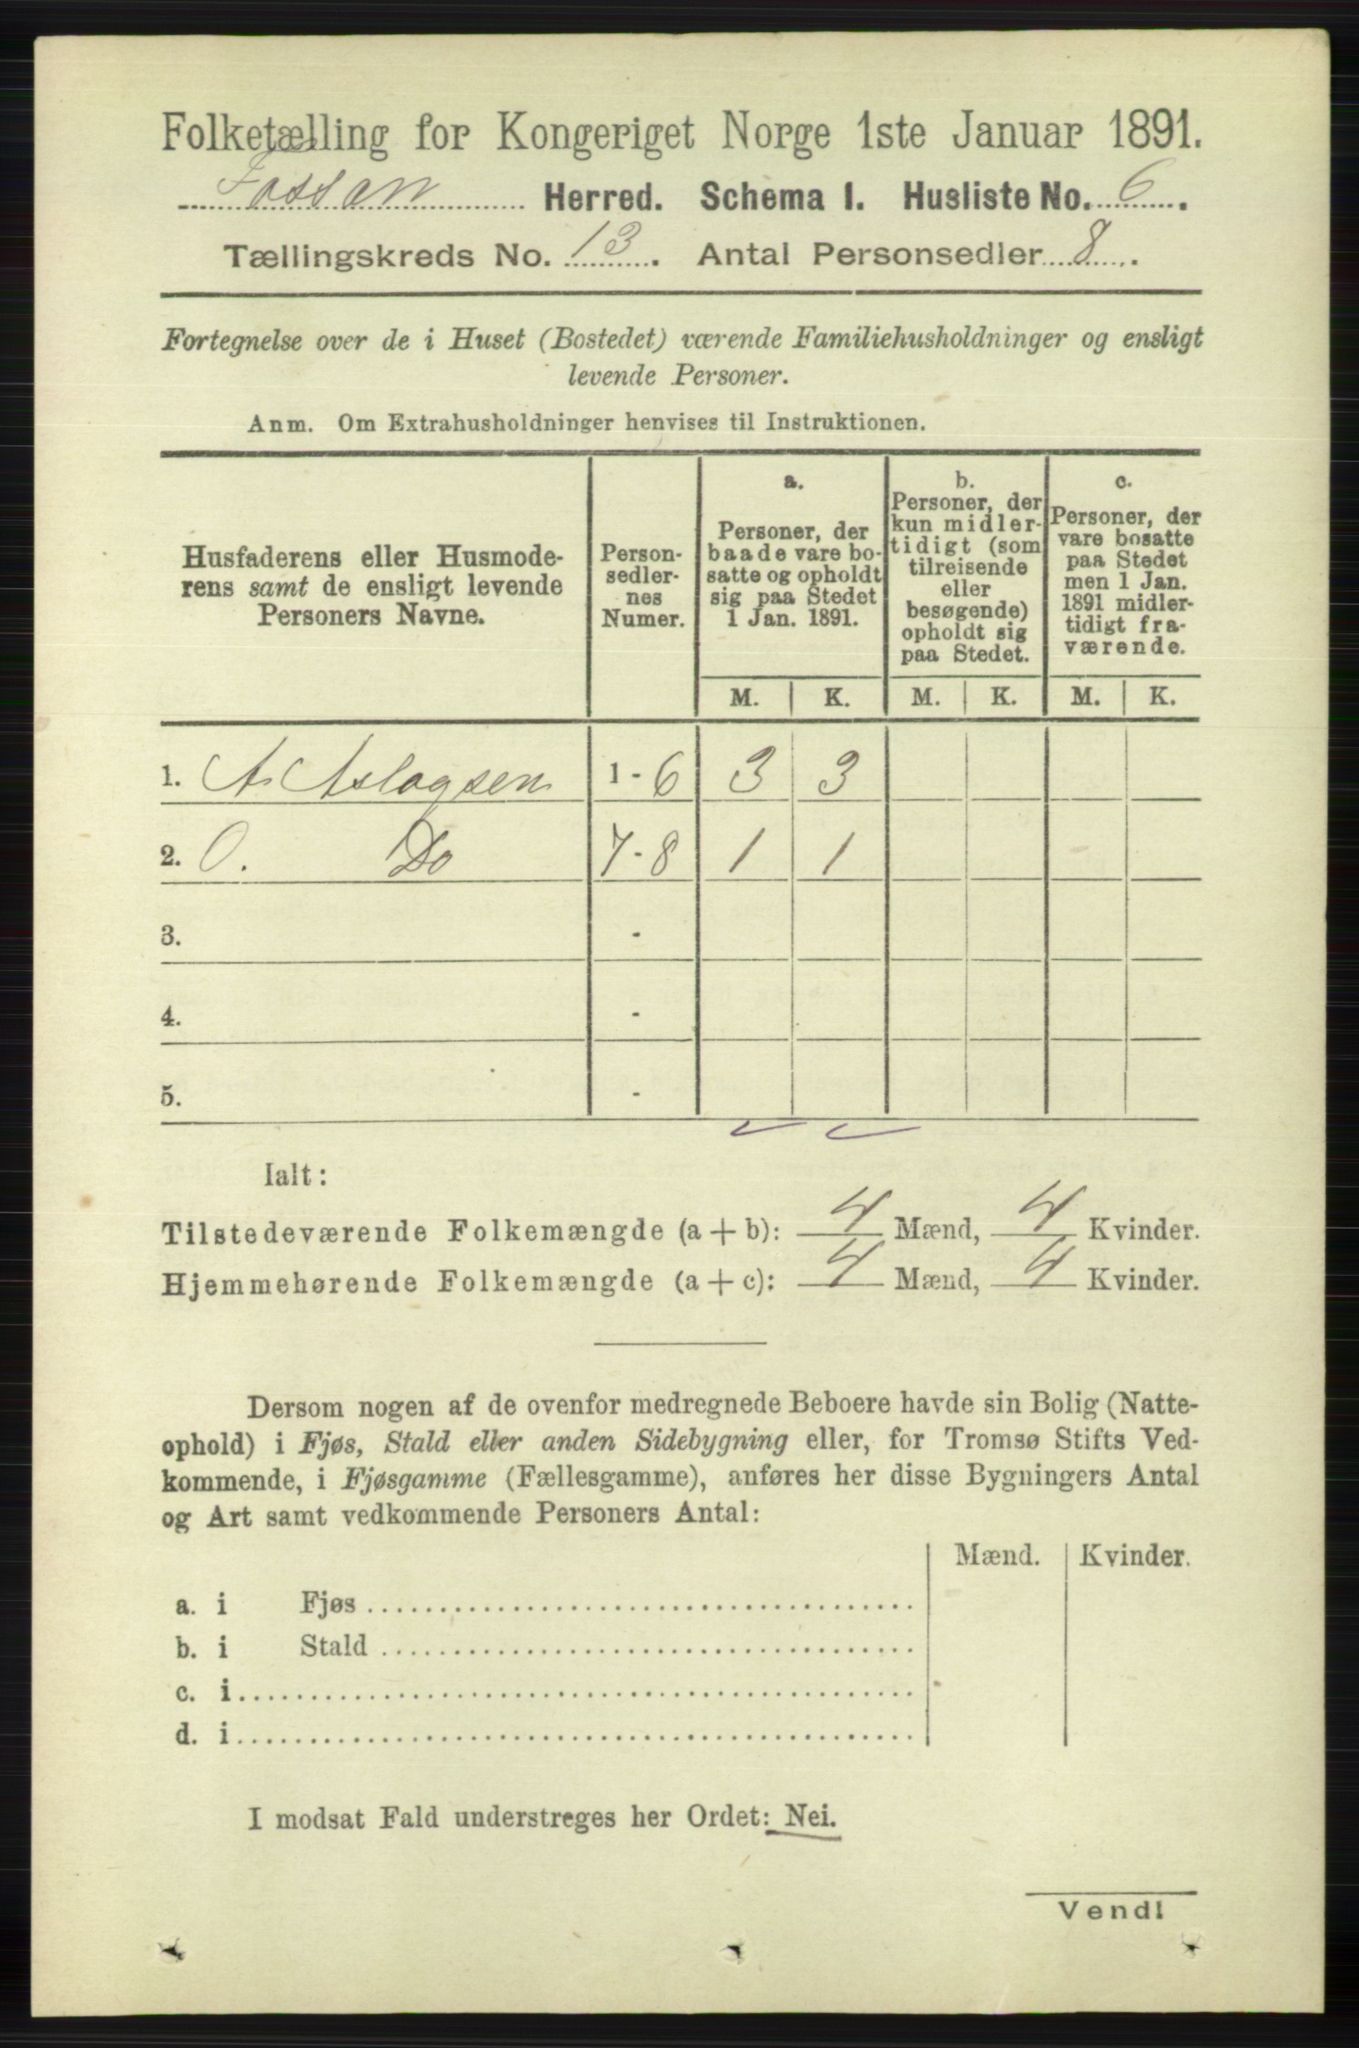 Folketælling for Kongeriget Norge 1ste Januar 1891.
Fossan Herred. Schema I. Husliste No. 6.
Tællingskreds No. 13. Antal Personsedler 8.
Fortegnelse over de i Huset (Bostedet) værende Familiehusholdninger og ensligt
levende Personer.
Anm. Om Extrahusholdninger henvises til Instruktionen.
Husfaderens eller Husmode-
rens samt de ensligt levende
Personers Navne.
Person-
sedler-
nes
Numer.
a.
Personer, der
baade vare bo-
satte og opholdt
sig paa Stedet
1 Jan. 1891.
b.
Personer, der
kun midler-
tidigt (som
tilreisende
eller
besøgende)
opholdt sig
paa Stedet.
c.
Personer, der
vare bosatte
paa Stedet
men 1 Jan.
1891 midler-
tidigt fra-
værende.
M. K. M. K. M. K.
1. A. Aslagsen 1-6 3 3
2. O. Do 7-8 1 1
3. -
4. -
5. -
Ialt:
Tilstedeværende Folkemængde (a + b): 4 Mænd, 4 Kvinder.
Hjemmehørende Folkemængde (a + c): 4 Mænd, 4 Kvinder.
Dersom nogen af de ovenfor medregnede Beboere havde sin Bolig (Natte-
ophold) i Fjøs, Stald eller anden Sidebygning eller, for Tromsø Stifts Ved-
kommende, i Fjøsgamme (Fællesgamme), anføres her disse Bygningers Antal
og Art samt vedkommende Personers Antal:
Mænd. Kvinder.
a. i Fjøs
b. i Stald
c. i
d. i
I modsat Fald understreges her Ordet: Nei.
Vend!